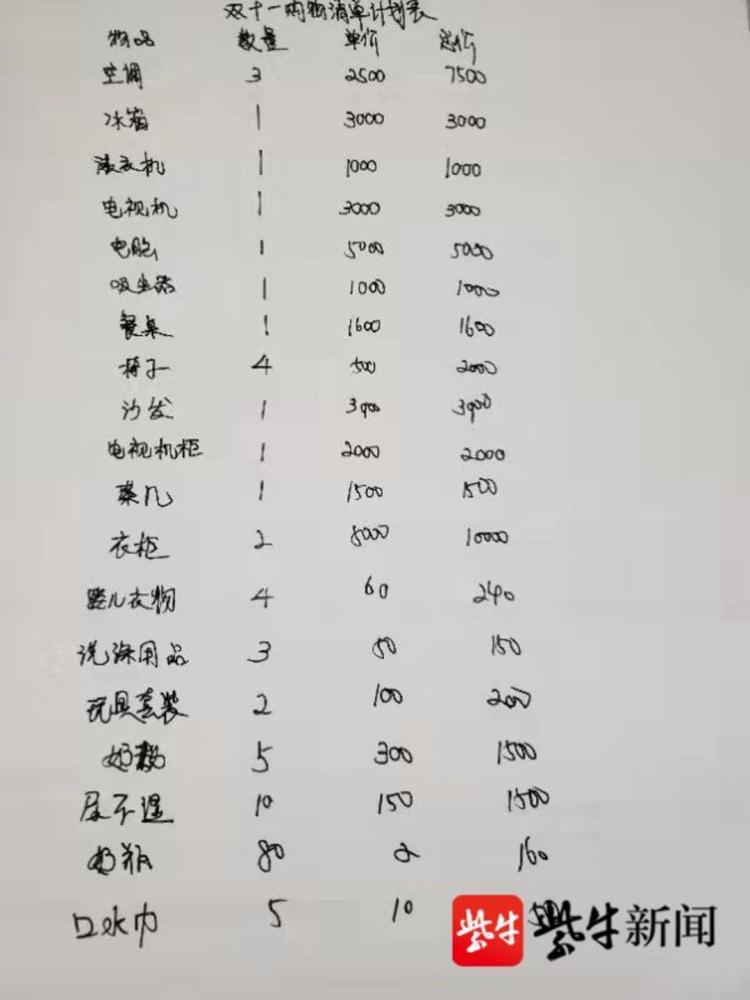 双十一购物清单计划表
物品 数量 单价 总价
空调 3 2500 7500
冰箱 1 3000 3000
洗衣机 1 1000 1000
电视机 1 3000 3000
电脑 1 5000 5000
吸尘器 1 1000 1000
餐桌 1 1600 1600
椅子 4 500 2000
沙发 1 3900 3900
电视机柜 1 2000 2000
茶几 1 1500 1500
衣柜 2 5000 10000
婴儿衣物 4 60 240
洗涤用品 3 50 150
玩具套装 2 100 200
奶粉 5 300 1500
尿不湿 10 150 1500
奶瓶 80 2 160
口水巾 5 10
紫牛 紫牛新闻